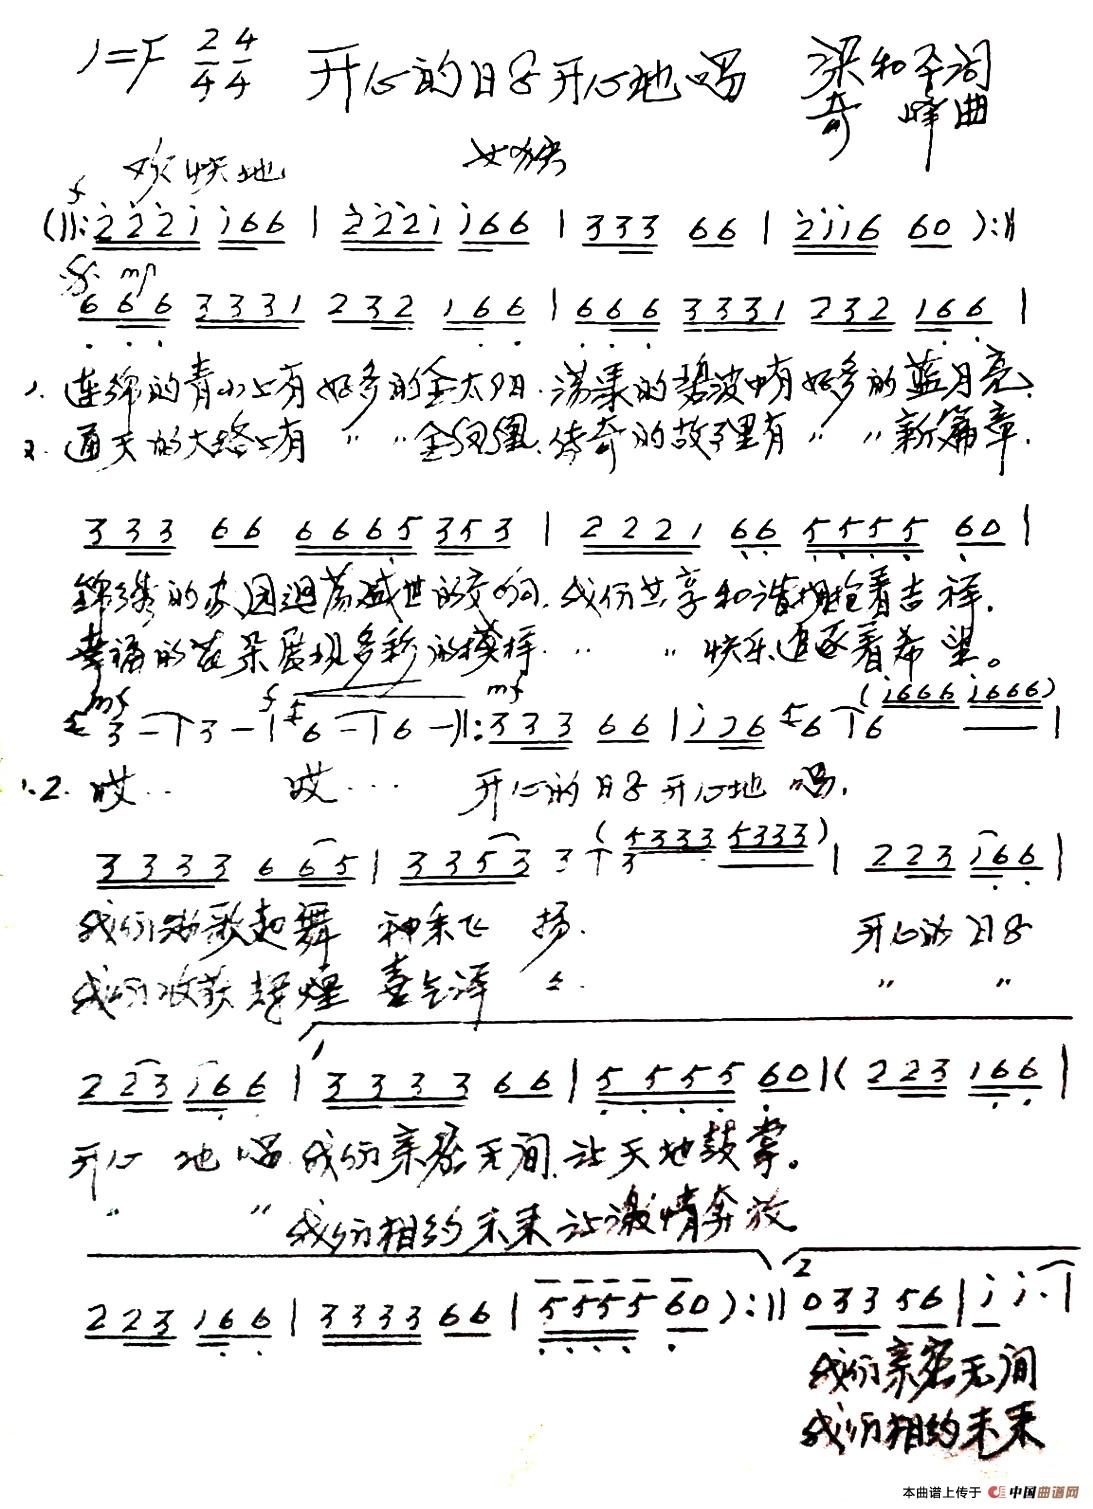 1=F 2/4 4/4 开心的日子开心地唱 梁和平词
奇峰曲
欢快地 女独
f
(||: 2̇2̇2̇1̇ 1̇66 | 2̇2̇2̇1̇ 1̇66 | 333 66 | 2̇1̇1̇6 60 ) :||
mf
666 3331 232 166 | 666 3331 232 166 |
1. 连绵的青山上有好多的金太阳.荡漾的碧波中有好多的蓝月亮、
2. 通天的大路上有 〃 〃 金凤凰.传奇的故事里有 〃 〃 新篇章.
333 66 6665 353 | 2221 66 5555 60 |
锦绣的家园回荡盛世的交响.我们共享和谐拥抱着吉祥.
幸福的花朵展现多彩的模样. 〃 〃 快乐追逐着希望。
mf f mf (1̇666 1̇666)
3 - | 3 - | 6 - | 6 - ||: 333 66 | 1̇26 6 | 6 |
1.2. 哎‥ 哎‥· 开心的日子开心地 唱.
(5333 5333)
3333 665 | 3353 3 | 3 | 223 1̇66 |
我们放歌起舞 神采飞 扬. 开心的 日子
我们收获辉煌 喜气洋 〃. 〃 〃
1
223 1̇66 | 3333 66 | 5555 60 | ( 223 166 |
开心 地 唱.我们亲密无间.让天地鼓掌。
〃 〃 我们相约未来让激情奔放
2
223 166 | 3333 66 | 5555 60 ) :|| 033 56 | 1̇ 1̇· |
我们亲密无间
我们相约未来
本曲谱上传于 中国曲谱网